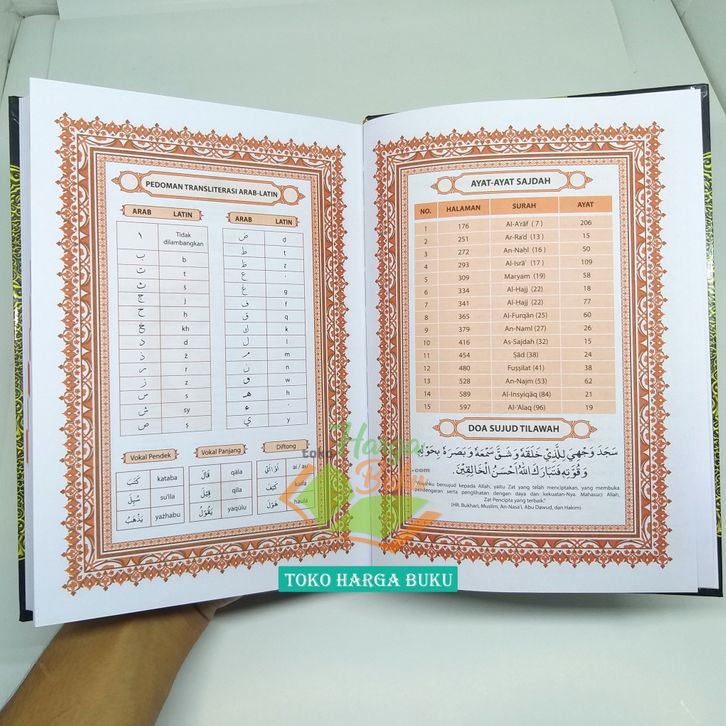 PEDOMAN TRANSLITERASI ARAB-LATIN
ARAB LATIN
١ Tidak dilambangkan
ب b
ت t
ث ś
ج j
ح h
خ kh
د d
ذ ż
ر r
ز z
س s
ش sy
ص ş
ARAB LATIN
ض d
ط t
ظ z
ع
غ g
ف f
ق q
ك k
ل l
م m
ن n
و w
هـ h
ء
ي y
Vokal Pendek
كَتَبَ kataba
سُئِلَ su'ila
يَذْهَبُ yazhabu
Vokal Panjang
قَالَ qāla
قِيْلَ qīla
يَقُوْلُ yaqūlu
Diftong
ai / au
كَيْفَ kaifa
هَوْلَ haula
AYAT-AYAT SAJDAH
NO. HALAMAN SURAH AYAT
1 176 Al-A'rāf ( 7 ) 206
2 251 Ar-Ra'd ( 13 ) 15
3 272 An-Nahl ( 16 ) 50
4 293 Al-Isrā' ( 17 ) 109
5 309 Maryam (19) 58
6 334 Al-Hajj (22) 18
7 341 Al-Hajj (22) 77
8 365 Al-Furqān (25) 60
9 379 An-Naml (27) 26
10 416 As-Sajdah (32) 15
11 454 Şād (38) 24
12 480 Fuṣṣilat (41) 38
13 528 An-Najm (53) 62
14 589 Al-Insyiqāq (84) 21
15 597 Al-'Alaq (96) 19
DOA SUJUD TILAWAH
سَجَدَ وَجْهِيَ لِلَّذِيْ خَلَقَهُ وَشَقَّ سَمْعَهُ وَبَصَرَهُ بِحَوْلِهِ
وَقُوَّتِهِ فَتَبَارَكَ اللهُ أَحْسَنُ الْخَالِقِيْنَ.
bersujud kepada Allah, yaitu Zat yang telah menciptakan, yang membuka
pendengaran serta penglihatan dengan daya dan kekuatan-Nya. Mahasuci Allah,
Zat Pencipta yang terbaik."
(HR. Bukhari, Muslim, An-Nasa'i, Abu Dawud, dan Hakim)
toko Harga Buku .com
TOKO HARGA BUKU